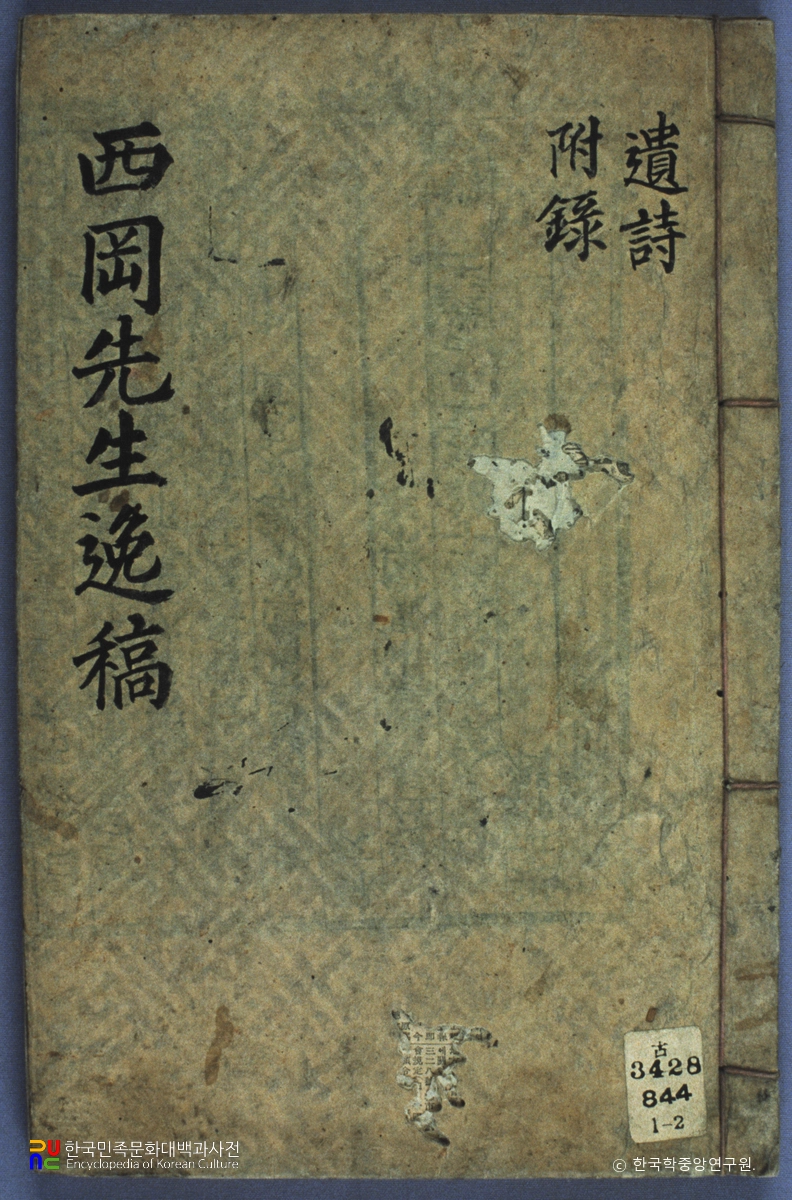 遺詩
附錄
西岡先生逸稿
古
3428
844
1-2
한국민족문화대백과사전
Encyclopedia of Korean Culture
ⓒ 한국학중앙연구원.